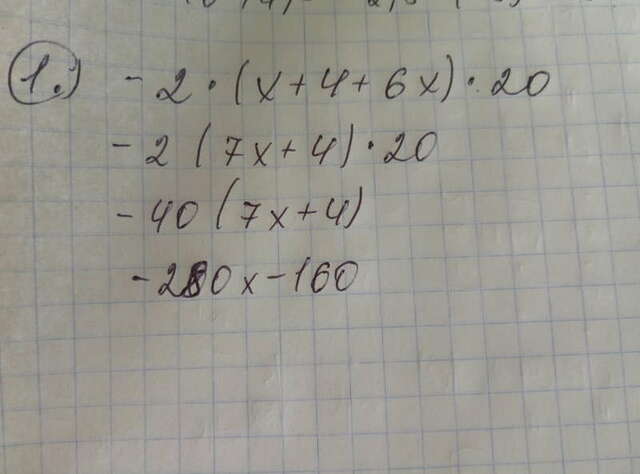 1.) - 2 · (x + 4 + 6x) · 20
- 2 (7x + 4) · 20
- 40 (7x + 4)
- 280x - 160